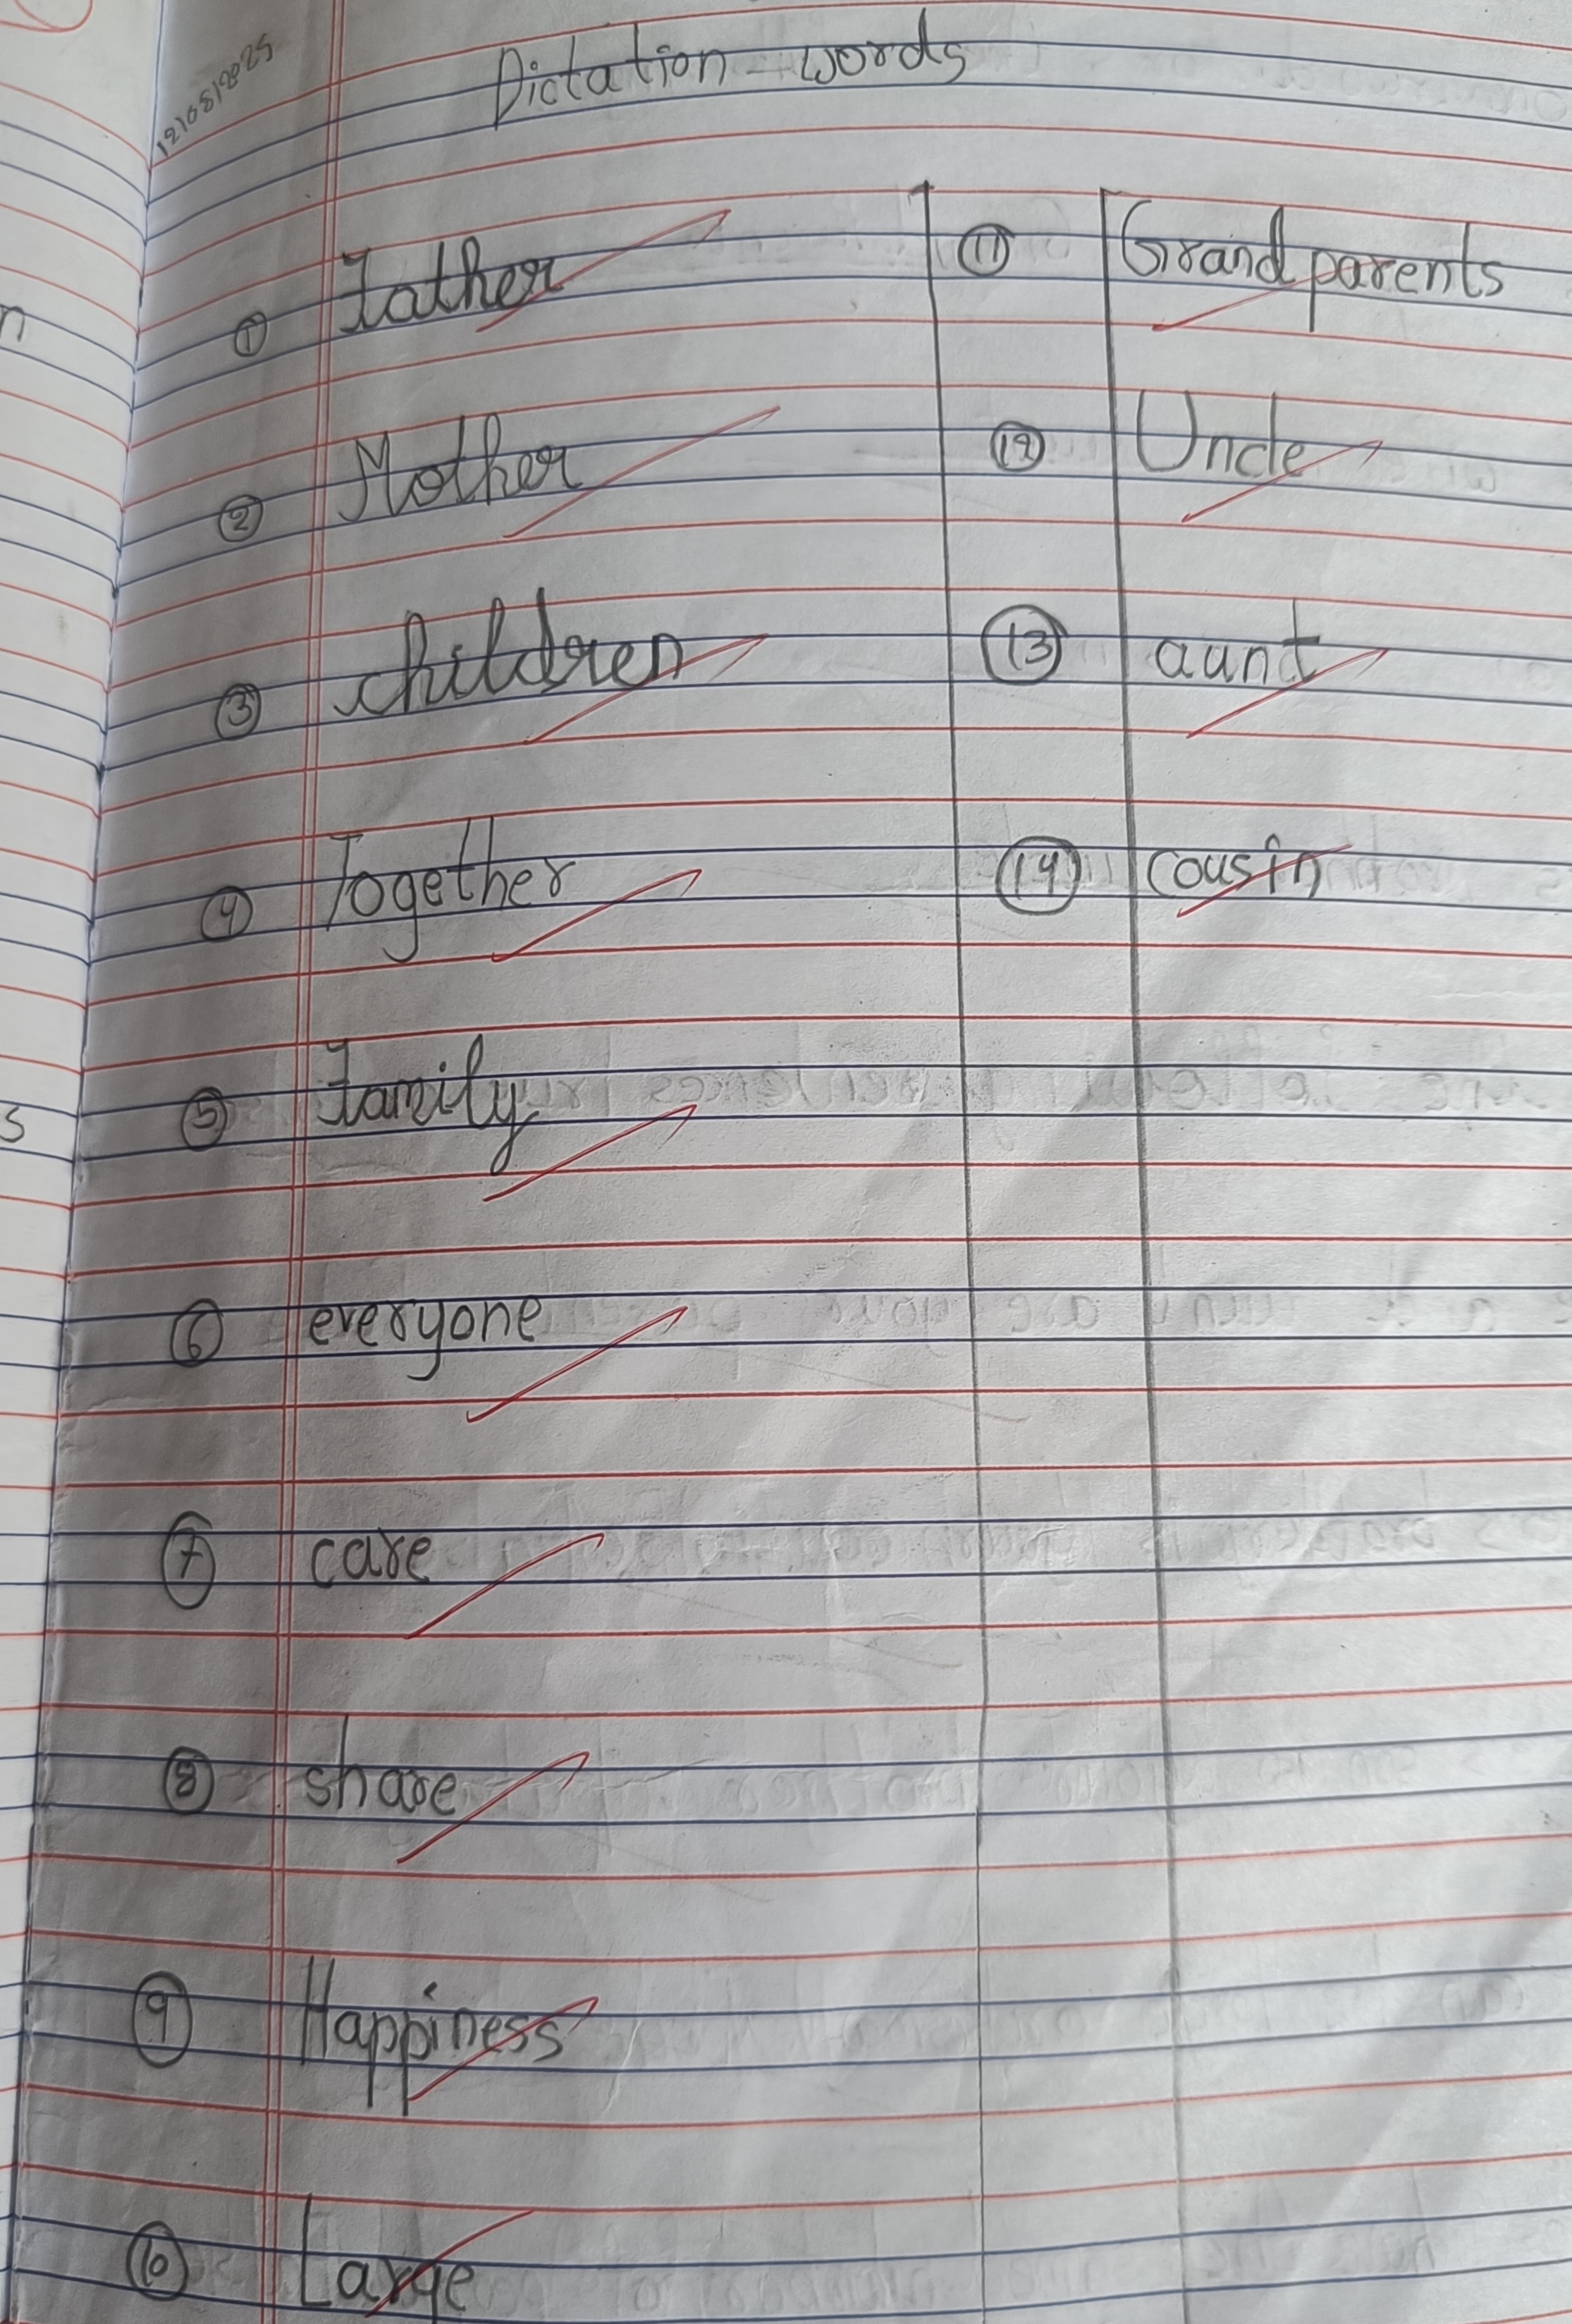 12/08/2025
Dictation - words
① Father
② Mother
③ children
④ Together
⑤ Family
⑥ everyone
⑦ care
⑧ share
⑨ Happiness
⑩ Large
⑪ Grand parents
⑫ Uncle
⑬ aunt
⑭ cousin
n
s